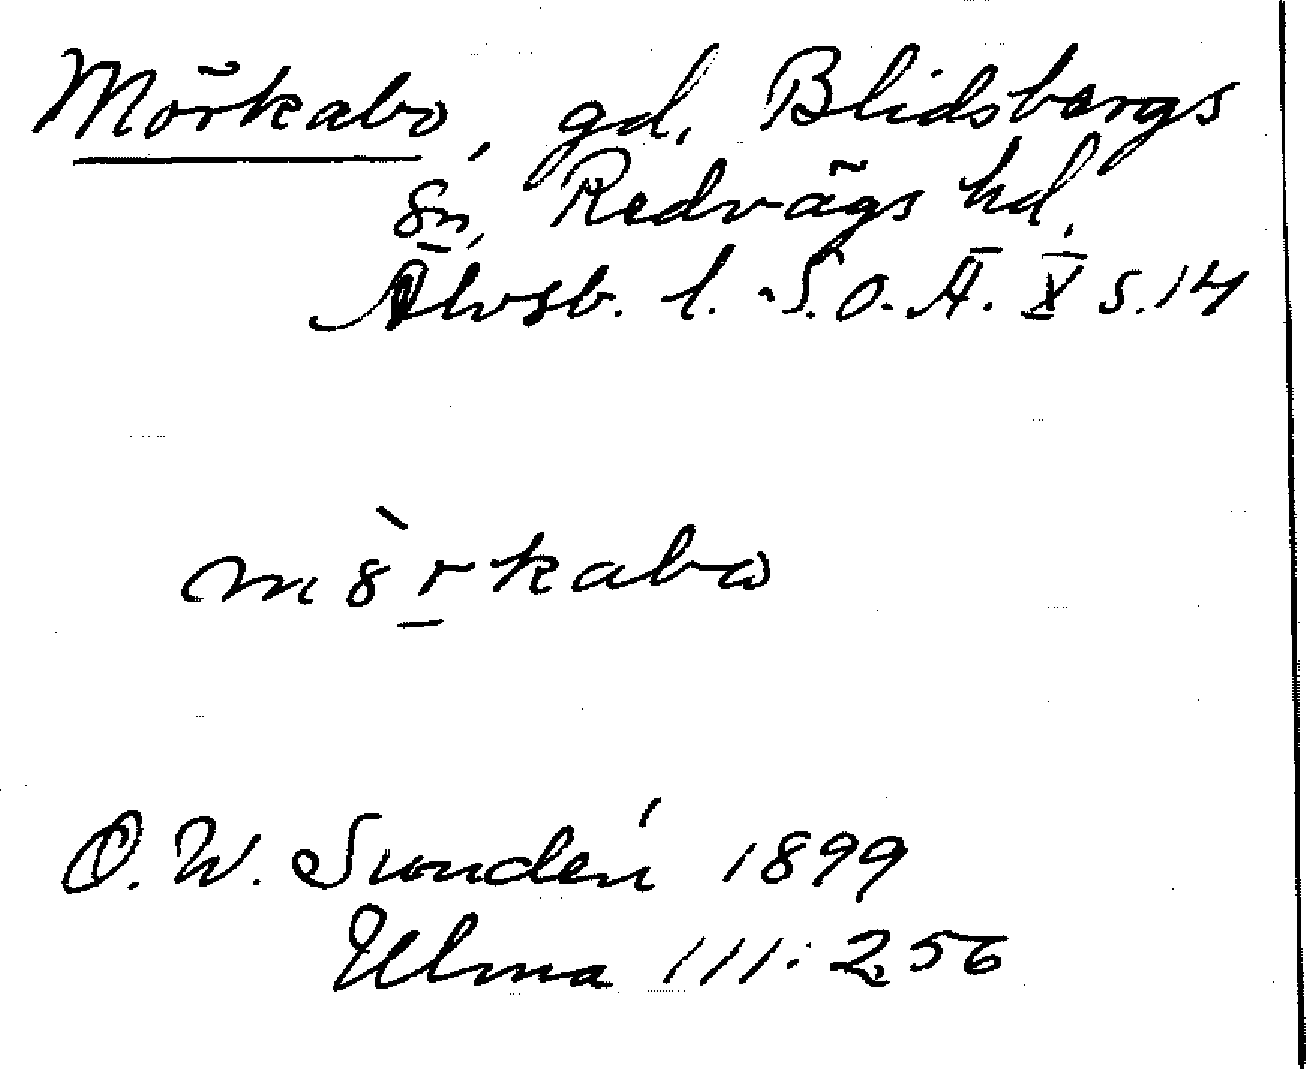 Mörkabo, gd, Blidsbergs
sn, Redvägs hd.
Älvsb. l. S.O.Ä. X s. 14
mö̀rkabo
D. W. Sundén 1899
Ulma 111:256